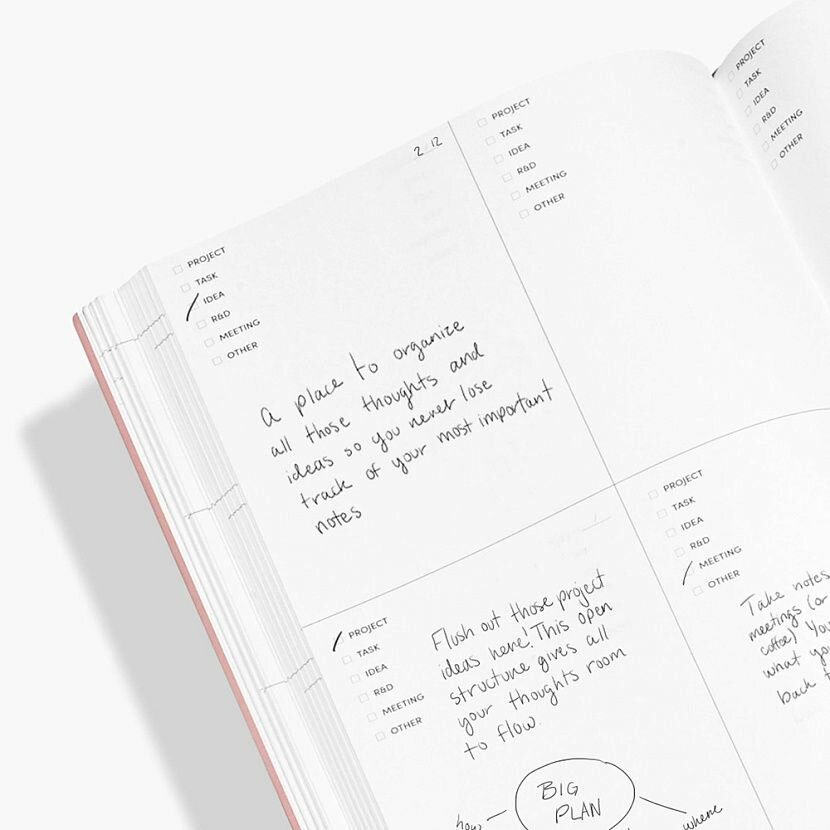 2/12
PROJECT
TASK
IDEA
R&D
MEETING
OTHER
A place to organize
all those thoughts and
ideas so you never lose
track of your most important
notes
PROJECT
TASK
IDEA
R&D
MEETING
OTHER
PROJECT
TASK
IDEA
R&D
MEETING
OTHER
PROJECT
TASK
IDEA
R&D
MEETING
OTHER
Flush out those project
ideas here! This open
structure gives all
your thoughts room
to flow.
BIG
PLAN
how
where
PROJECT
TASK
IDEA
R&D
MEETING
OTHER
Take notes
meetings (or
coffee)
what
back